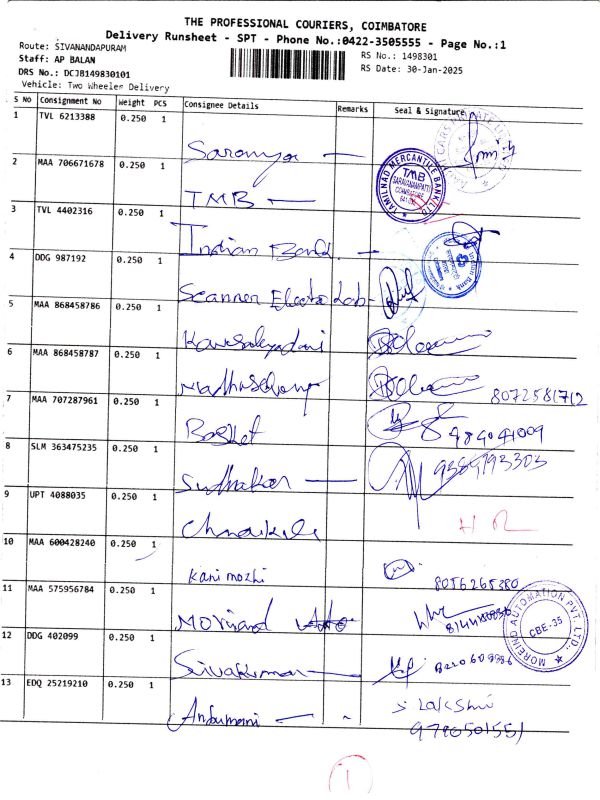 THE PROFESSIONAL COURIERS, COIMBATORE
Delivery Runsheet - SPT - Phone No.:0422-3505555 - Page No.:1
Route: SIVANANDAPURAM
RS No.: 1498301
Staff: AP BALAN
RS Date: 30-Jan-2025
DRS No.: DCJB149830101
Vehicle: Two Wheeler Delivery
S No Consignment No Weight PCS Consignee Details Remarks Seal & Signature
1 TVL 6213388 0.250 1
Saranya
2 MAA 706671678 0.250 1
TMB
TAMILNAD MERCANTILE BANK LTD.
TMB
SARAVANAMPATTI
COIMBATORE
3 TVL 4402316 0.250 1
Indian Bank
Indian Bank
4 DDG 987192 0.250 1
Scanner Electo Lab
5 MAA 868458786 0.250 1
6 MAA 868458787 0.250 1
8072581712
7 MAA 707287961 0.250 1
Basket
8 SLM 363475235 0.250 1
Sudhakar
9389793303
9 UPT 4088035 0.250 1
H R
10 MAA 600428240 0.250 1
Kani mozhi
8056265380
11 MAA 575956784 0.250 1
MOREIND AUTOMATION PVT. LTD.,
CBE-35
12 DDG 402099 0.250 1
Sivakumar
13 EDQ 25219210 0.250 1
Anbumani
9786501551
1